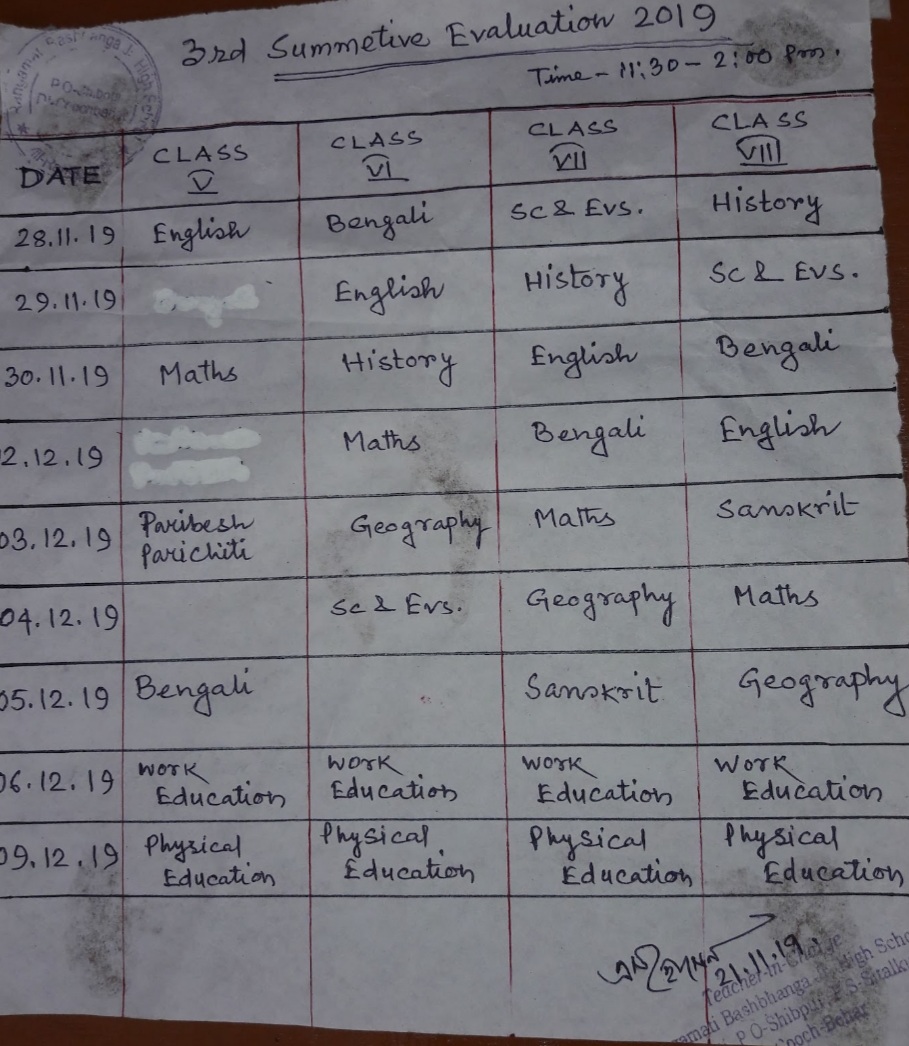 3rd Summetive Evaluation 2019
Time - 11:30 - 2:00 pm.
DATE CLASS V CLASS VI CLASS VII CLASS VIII
28.11.19 English Bengali Sc & Evs. History
29.11.19 English History Sc & Evs.
30.11.19 Maths History English Bengali
2.12.19 Maths Bengali English
03.12.19 Paribesh Parichiti Geography Maths Sanskrit
04.12.19 Sc & Evs. Geography Maths
05.12.19 Bengali Sanskrit Geography
06.12.19 Work Education Work Education Work Education Work Education
09.12.19 Physical Education Physical Education Physical Education Physical Education
21.11.19
Teacher-in-Charge
Bashbhanga High Scho
P O-Shibpur